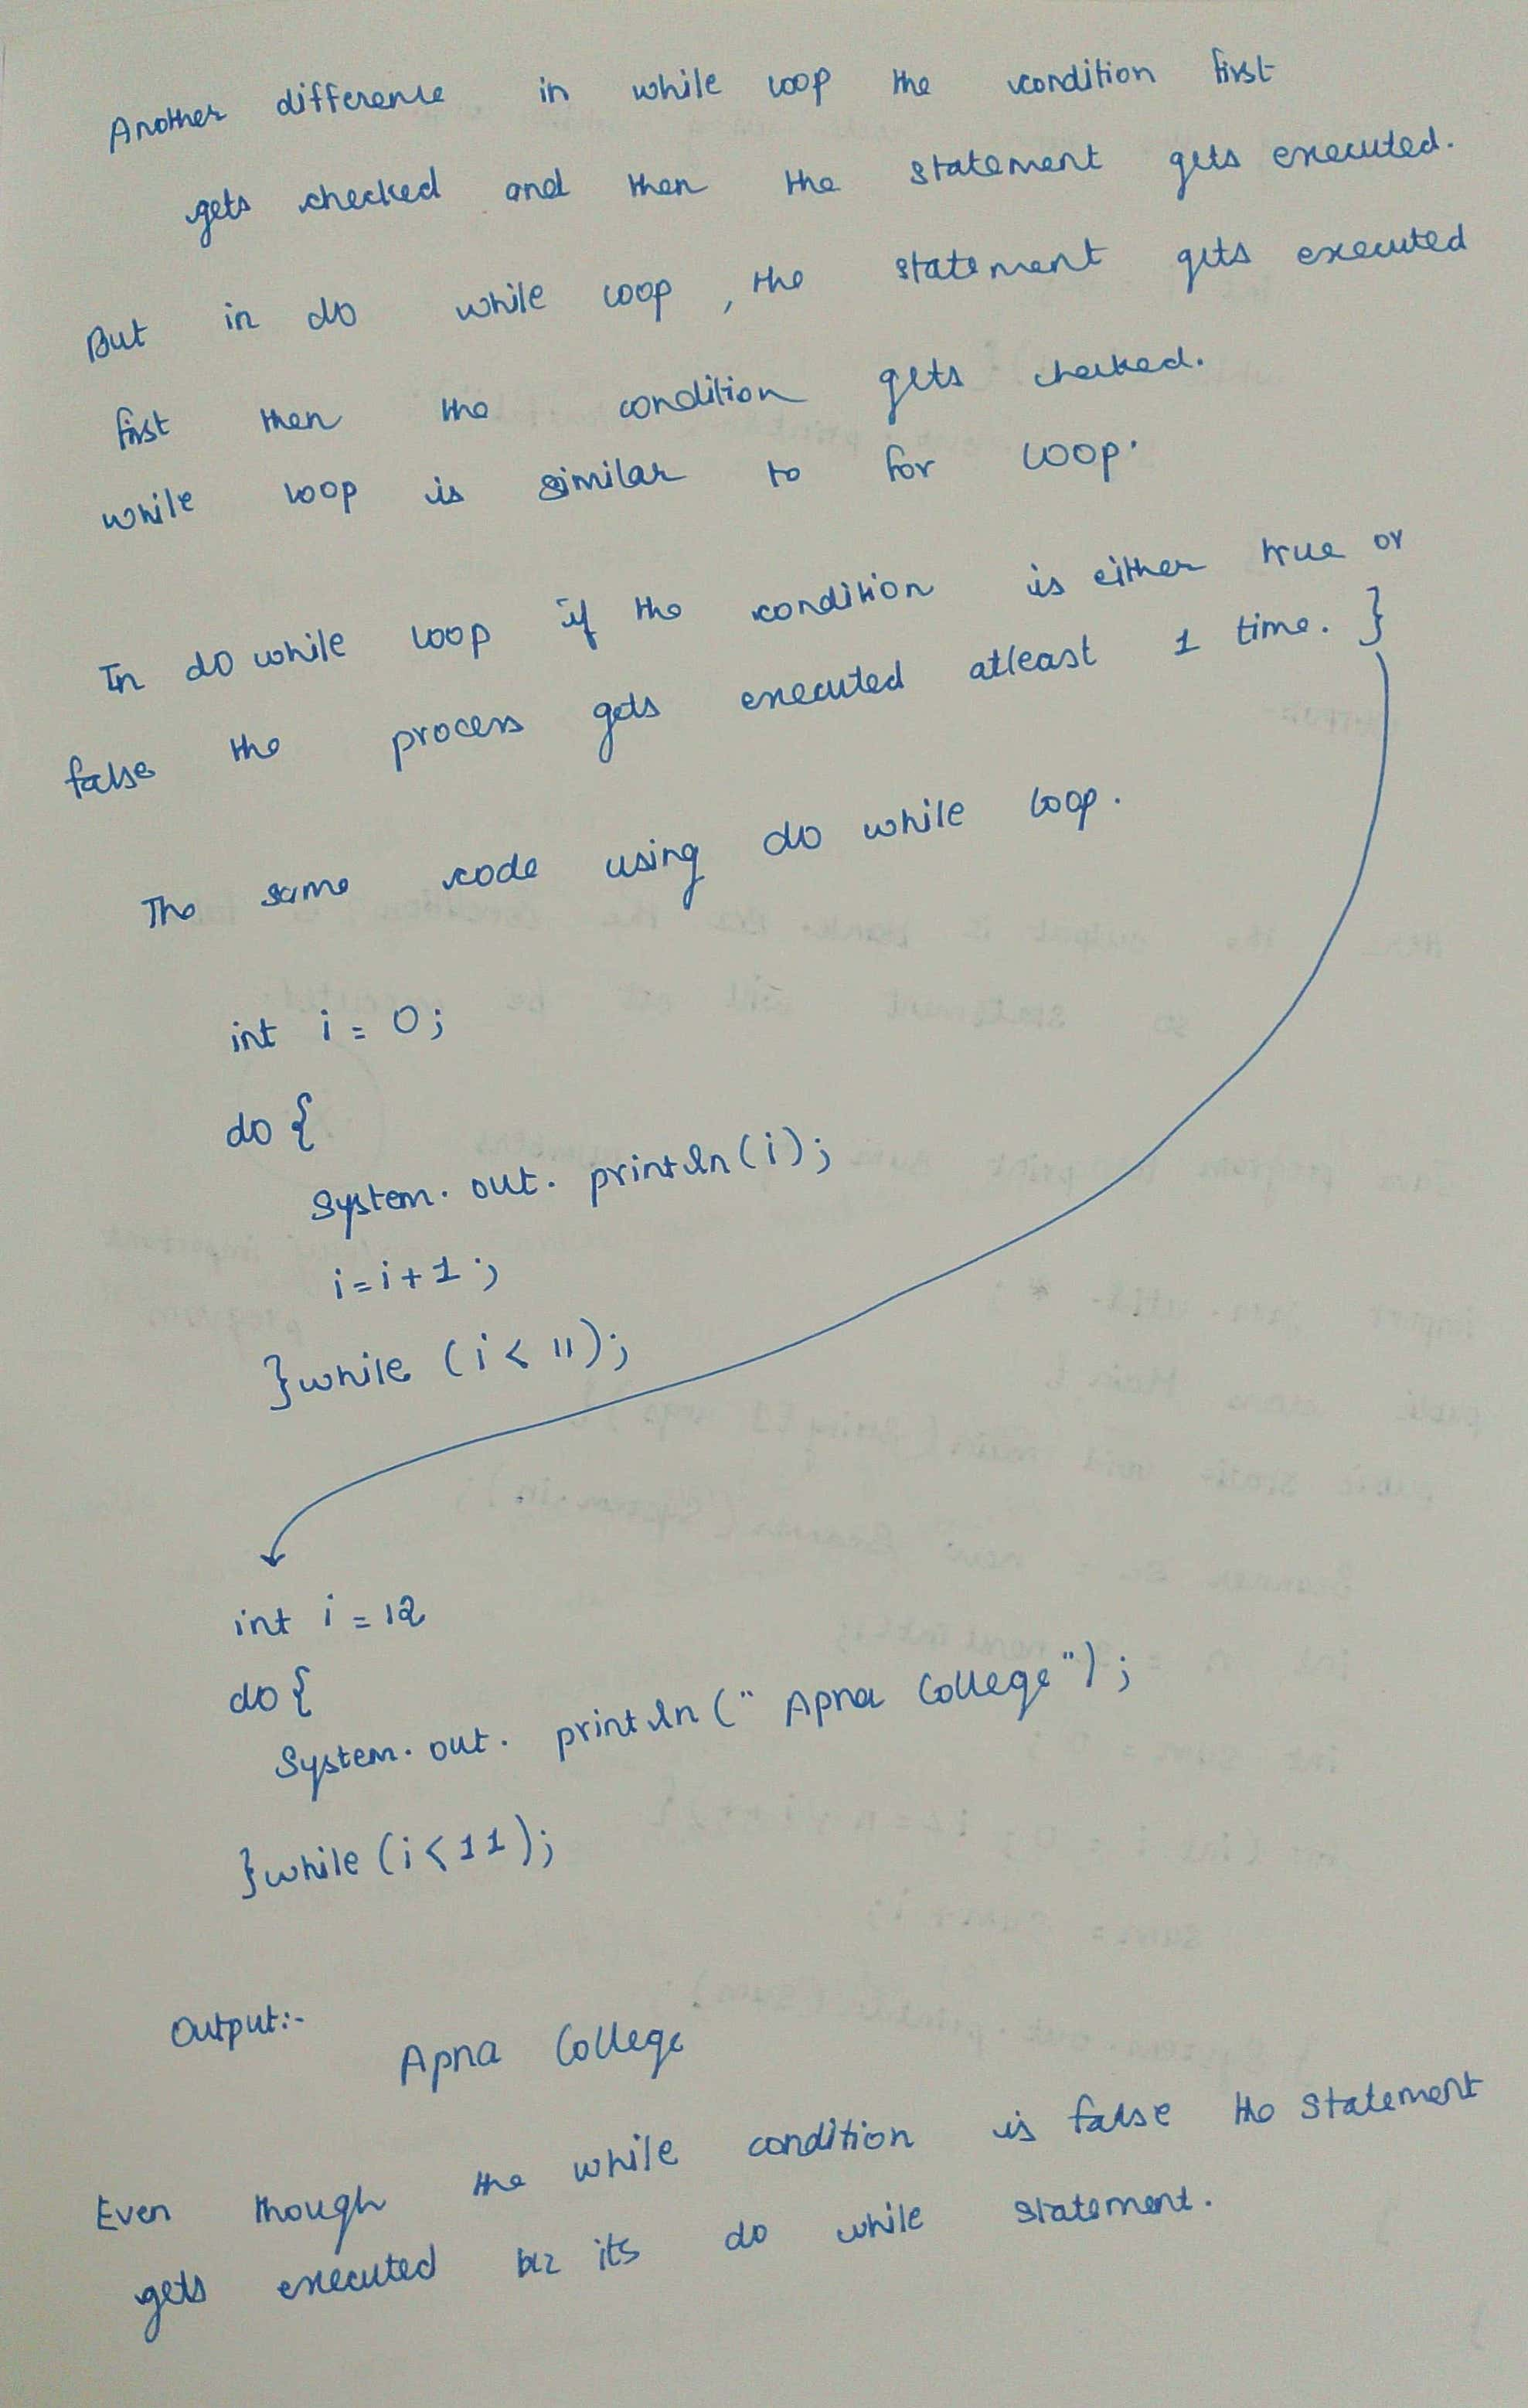 Another difference in while loop the condition first
gets checked and then the statement gets executed.
But in do while loop, the statement gets executed
first then the condition gets checked.
while loop is similar to for loop.
In do while loop if the condition is either true or
false the process gets executed atleast 1 time. }
The same code using do while loop.
int i = 0;
do {
System. out. println(i);
i=i+1;
}while (i< 11);
int i = 12
do {
System. out. println(" Apna College");
}while (i<11);
Output:-
Apna College
Even though the while condition is false the statement
gets executed bcz its do while statement.